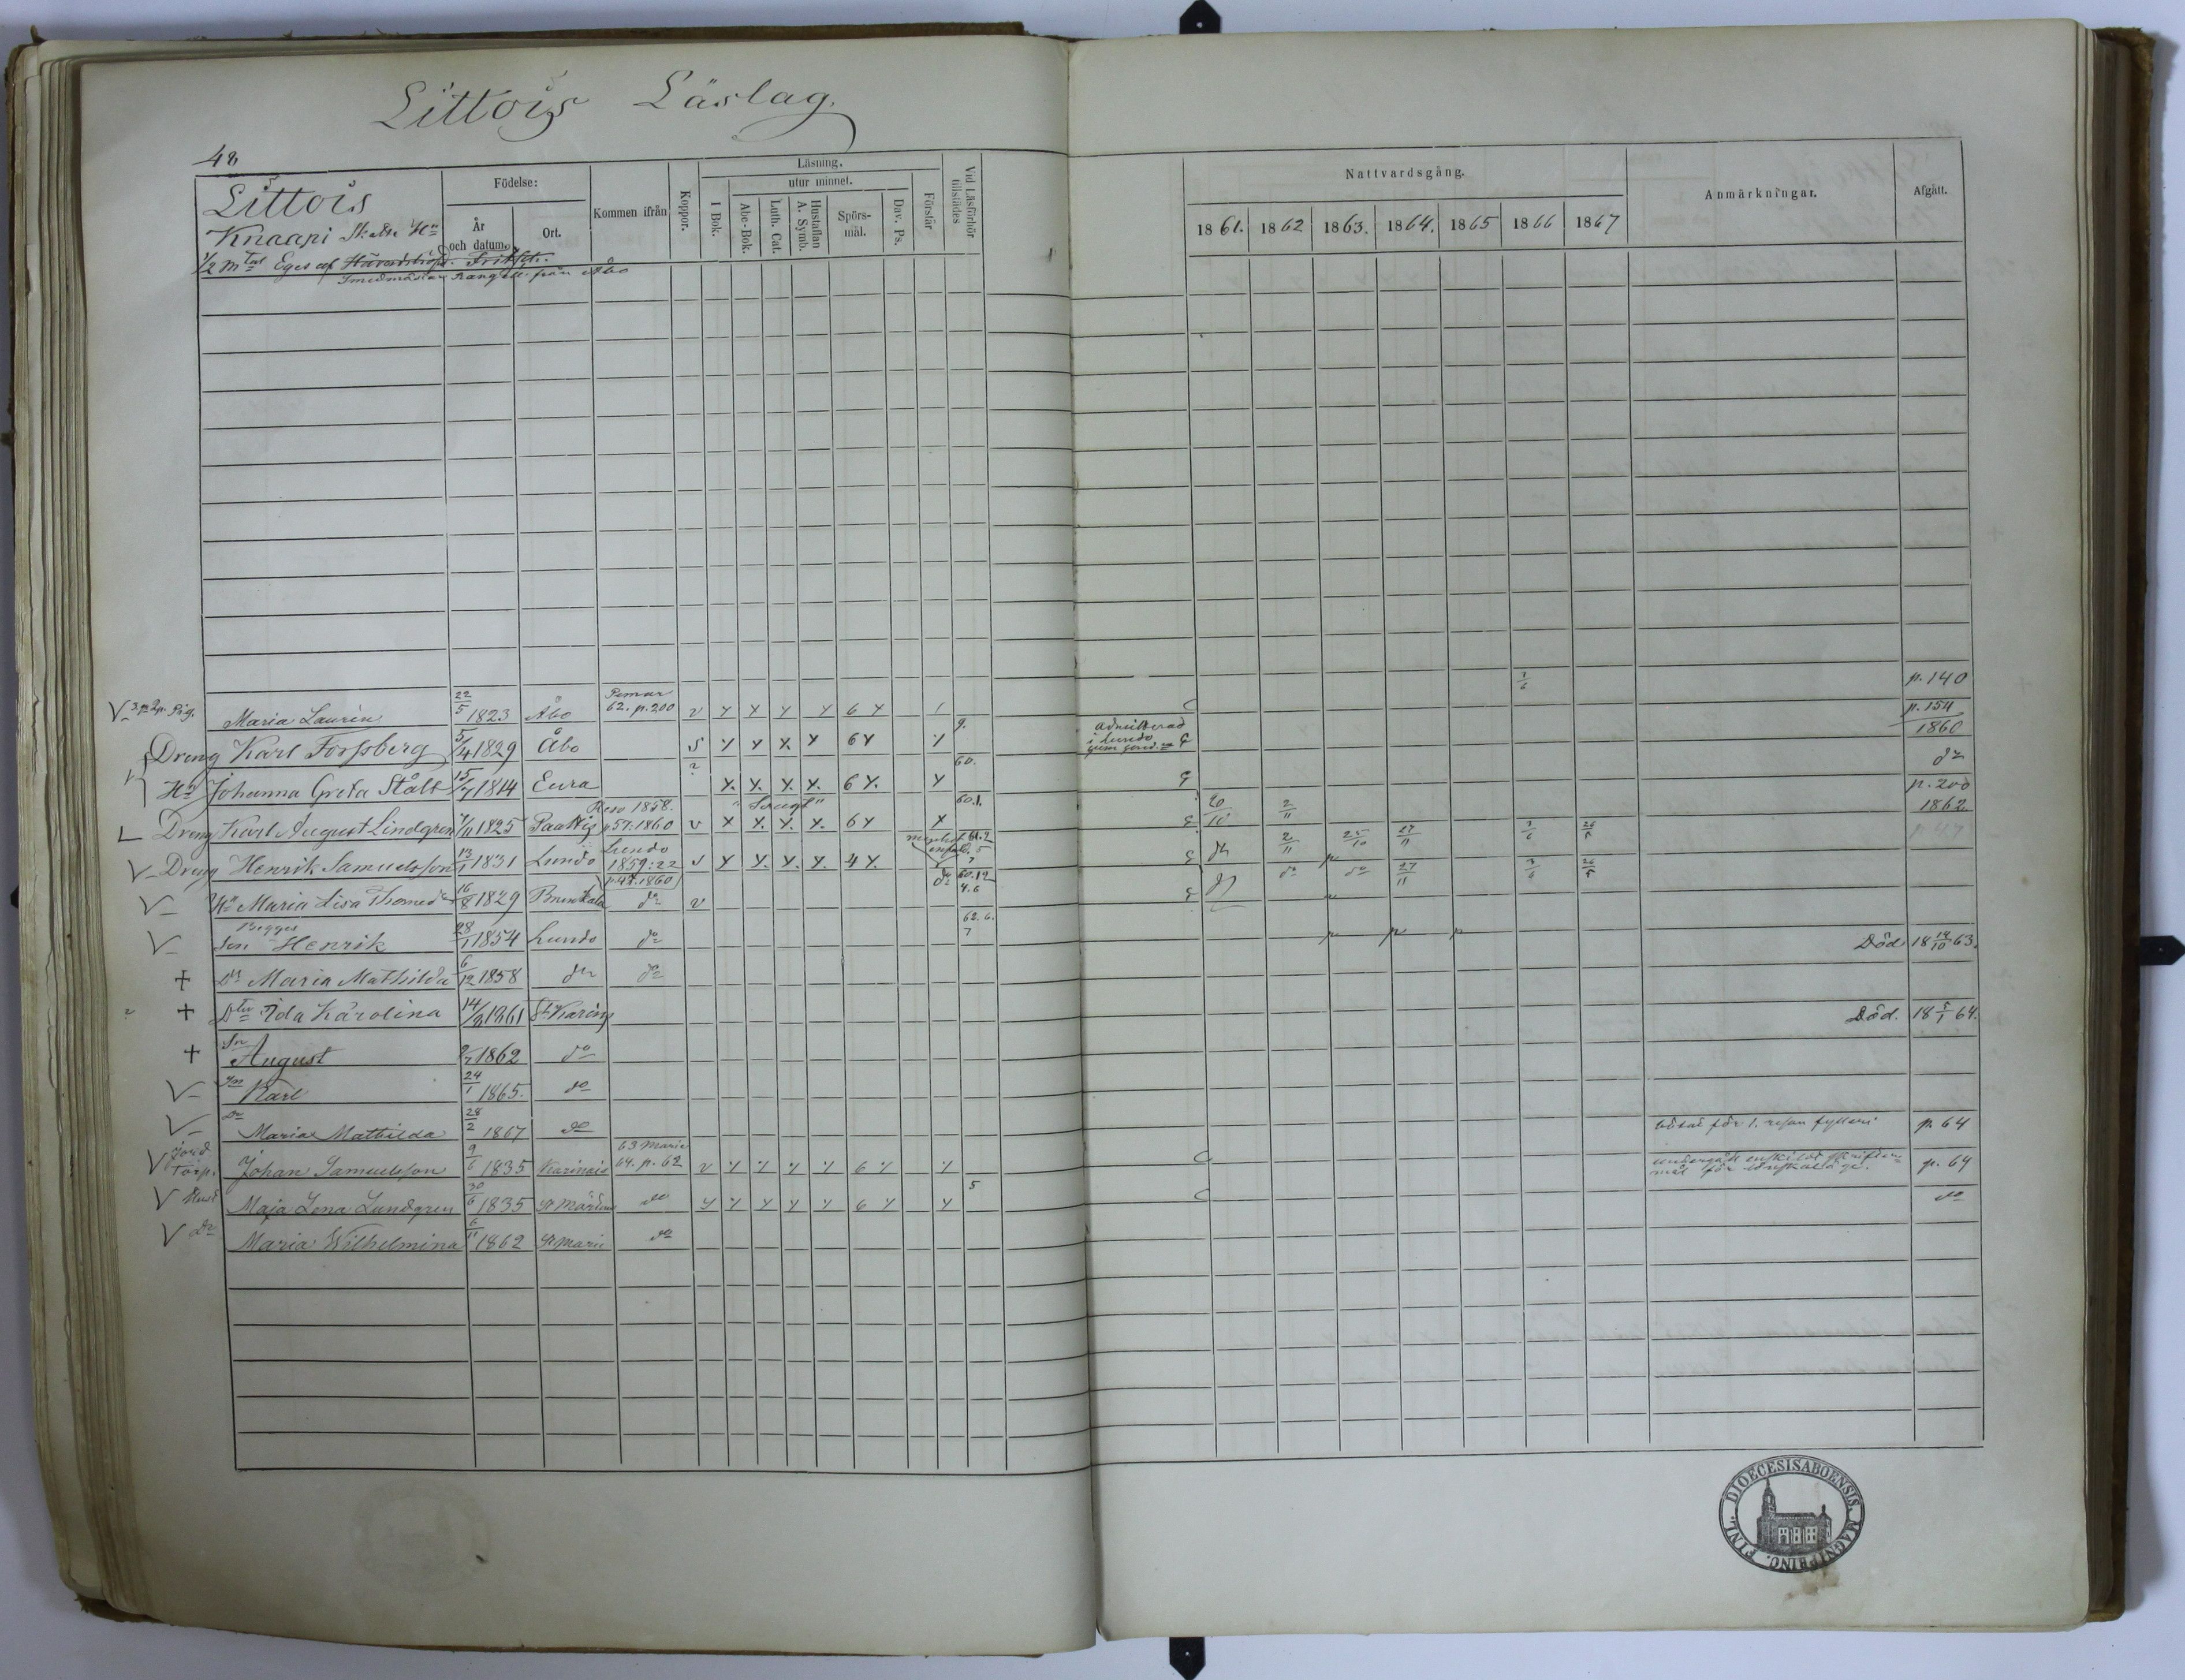 Littois Läslag.
48
Littois
Knaapi Skatte Hen
1/2 Mtal Eges af Häradshöfd. Fritsch.
från Åbo
Födelse:
År och datum.
Ort.
Kommen ifrån
Koppor.
Läsning.
I Bok.
utur minnet.
Abc-Bok.
Luth. Cat.
Hustaflan A. Symb.
Spörsmål.
Dav. Ps.
Förstår
Vid Läsförhör tillstädes
Nattvardsgång.
1861. 1862 1863. 1864. 1865 1866 1867
Anmärkningar.
Afgått.
Maria Laurén 22/5 1823 Åbo Pemar 62. p. 200 v 6 7/6 p. 140
Dreng Karl Forssberg 5/4 1829 Åbo 6 9. admitterad i Lundo p. 154 1860
Hu Johanna Greta Stålt 15/7 1814 Eura 6 60. do
Dreng Karl August Lindgren 1825 Paattis Reso 1858. p 57. 1860 v 6 60.1. 20/10 2/11 p. 200 1862
Dreng Henrik Samuelsson 13/1 1831 Lundo Lundo 1859:22 4 do 2/11 25/10 27/11 7/6 26/5
Hu Maria Lisa Thomedr 16/8 1829 Brunkala p 47. 1860 do v do do do 27/11 7/6 26/5
Begges
Son Henrik 28/1 1854 Lundo do 62. 6. 7
Dr Maria Mathilda 6/12 1858 do do Död 18 14/10 63.
Dter Ida Karolina 14/8 1861 St Karins
Sn August 8/7 1862 do Död. 18 5/1 64.
Sn Karl 24/1 1865. do
Dr Maria Mathilda 28/2 1867 do
Jord Torp. Johan Samuelsson 9/6 1835 Karinais 63 Marie 64. p. 62 v 6 bötat för 1. resan fylleri p. 64
Hust Maja Lena Lundgren 30/6 1835 St Mårtens do 6 5 p. 64
Dr Maria Wilhelmina 6/11 1862 St Marie do do
DIOECESIS ABOENSIS. MAGNI PRINC. FINL.